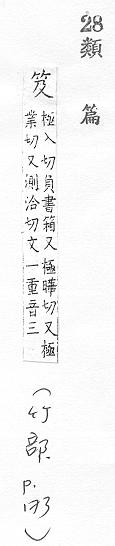 28類篇
笈
極入切負書箱又極曄切又極
業切又測洽切文一重音三
(竹部 p. 173)